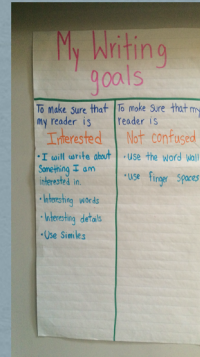 My Writing
goals
To make sure that
my reader is
Interested
• I will write about
Something I am
interested in.
• Interesting words
• Interesting details
• Use Similes
To make sure that my
reader is
Not confused
• use the word wall
• use finger spaces